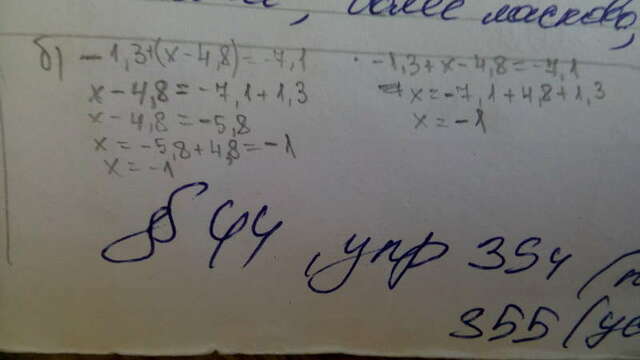 более ласково,
б) -1,3+(x-4,8)=-7,1
x-4,8=-7,1+1,3
x-4,8=-5,8
x=-5,8+4,8=-1
x=-1
-1,3+x-4,8=-7,1
x=-7,1+4,8+1,3
x=-1
§ 44, упр 354
355